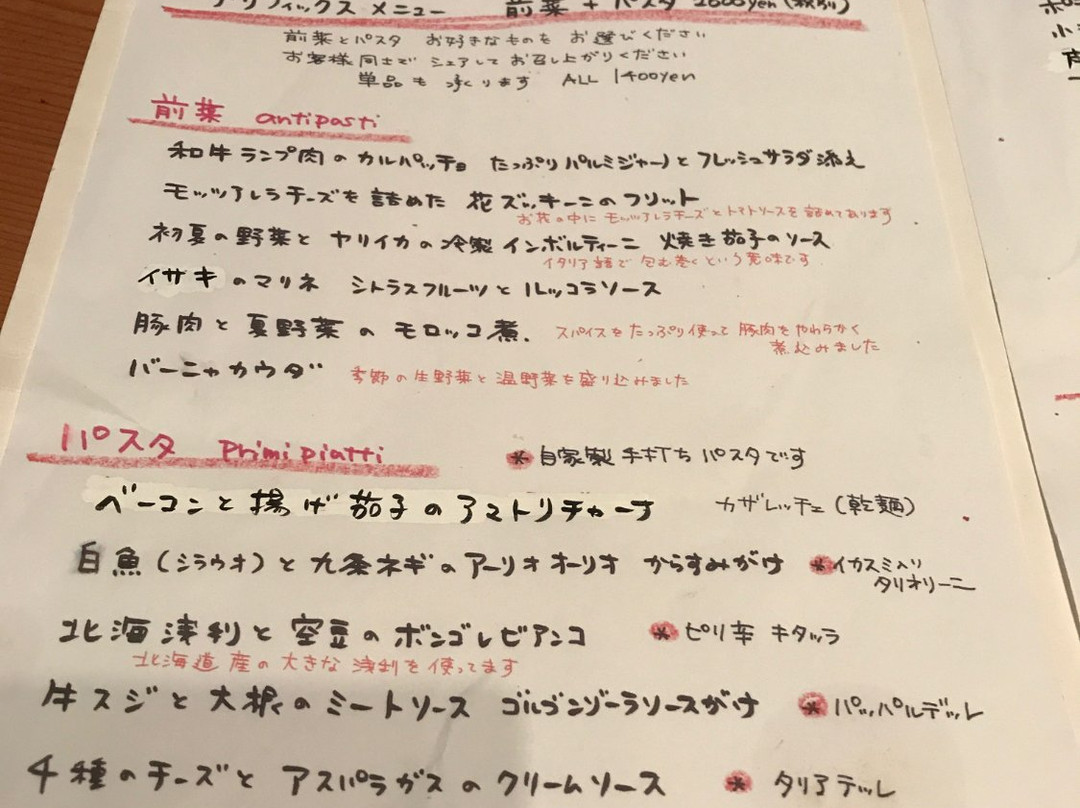 プリフィックス メニュー 前菜 + パスタ 2600yen(税別)
前菜とパスタ お好きなものを お選びください
お客様同士で シェアして お召し上がりください
単品も 承ります ALL 1400yen
前菜 antipasti
和牛ランプ肉のカルパッチョ たっぷりパルミジャーノとフレッシュサラダ添え
モッツアレラチーズを詰めた 花ズッキーニのフリット
お花の中に モッツアレラチーズとトマトソースを 詰めてあります
初夏の野菜と ヤリイカの冷製 インボルティーニ 焼き茄子のソース
イタリア語で 包む巻くという意味です
イサキのマリネ シトラスフルーツとルッコラソース
豚肉と夏野菜の モロッコ煮.
スパイスをたっぷり使って 豚肉をやわらかく
煮込みました
バーニャカウダ 季節の生野菜と温野菜を盛り込みました
パスタ Primi piatti * 自家製 手打ち パスタです
ベーコンと揚げ茄子のアマトリチャーナ カザレッチェ(乾麺)
白魚(シラウオ)と九条ネギのアーリオオーリオ からすみがけ * イカスミ入り
タリオリーニ
北海浅利と空豆のボンゴレビアンコ * ピリ辛 キタッラ
北海道産の大きな浅利を使ってます
牛スジと大根のミートソース ゴルゴンゾーラソースがけ * パッパルデッレ
4種のチーズとアスパラガスのクリームソース * タリアテッレ